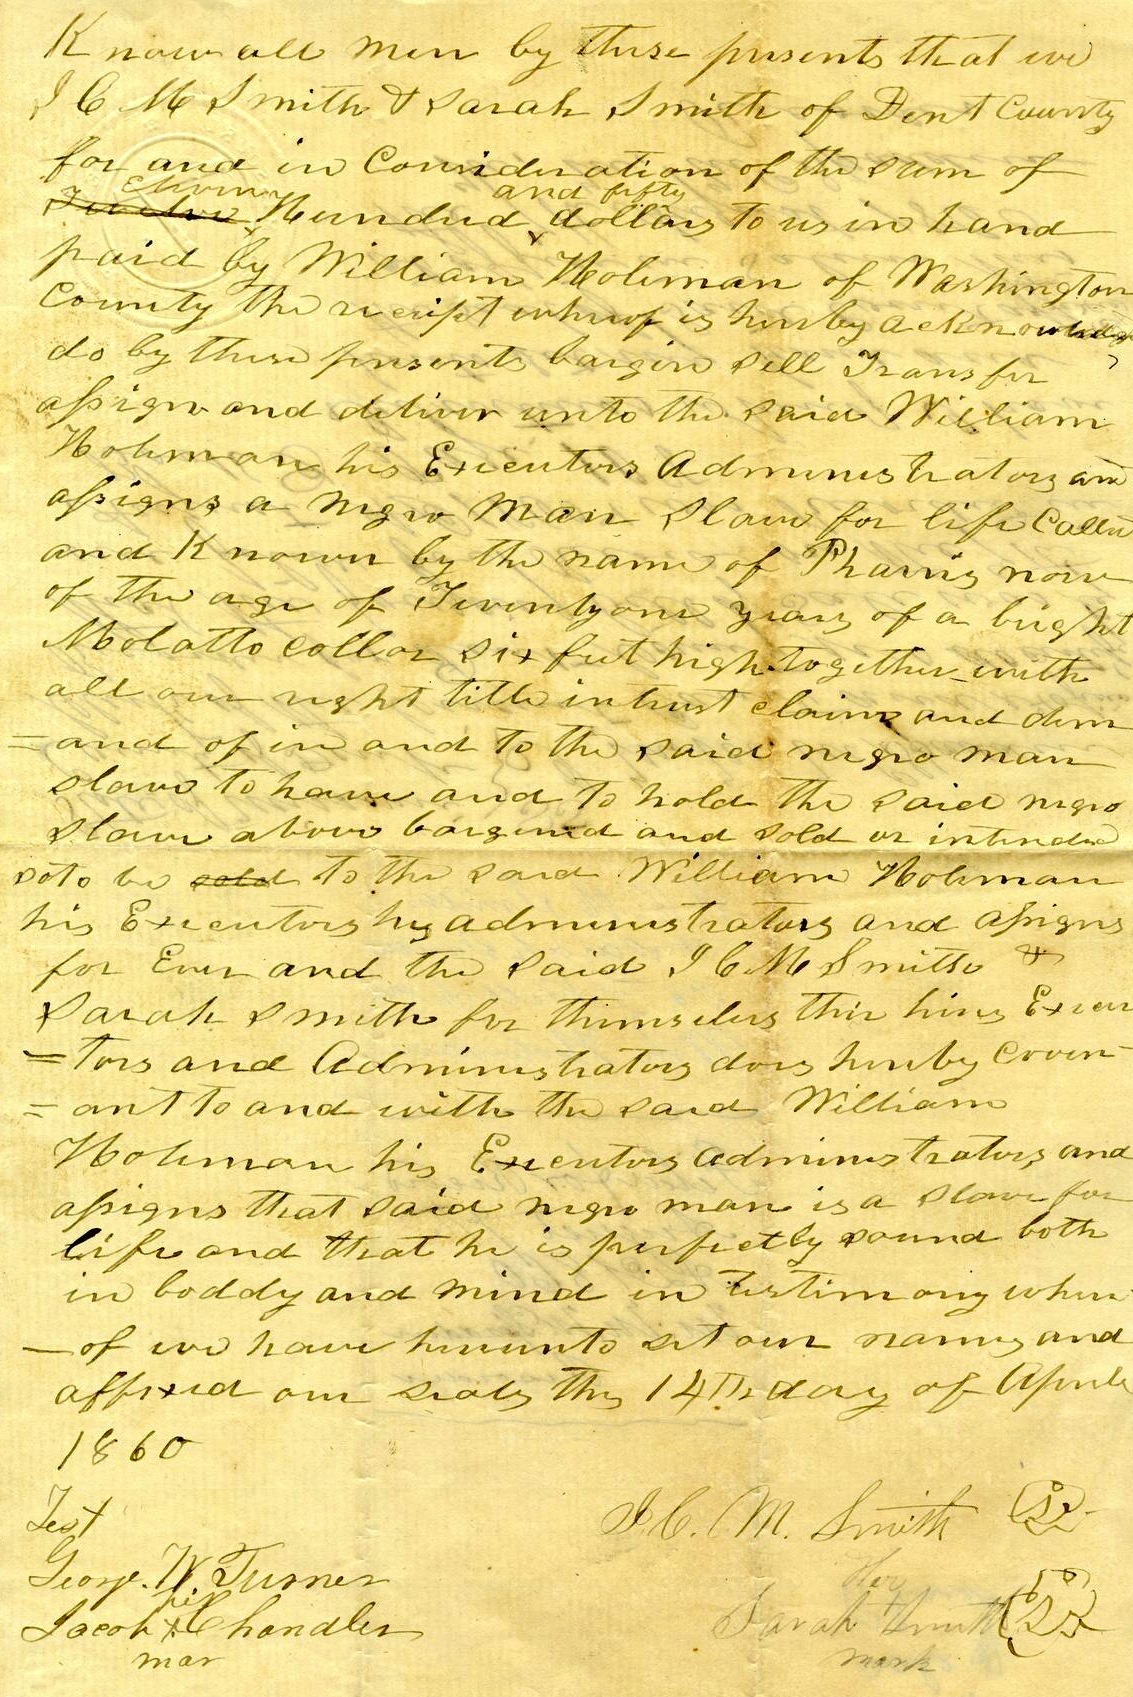 Know all men by these presents that we
J C M Smith & Sarah Smith of Dent County
for and in Consideration of the sum of
Eleven and fifty
Twelve Hundred dollars to us in hand
paid by William Holeman of Washington
County the receipt whereof is hereby acknowledged
do by these presents bargin sell Transfer
assign and deliver unto the said William
Holeman his Executors Administrators and
assigns a negro Man Slave for life Called
and Known by the name of Pharris now
of the age of Twentyone years of a bright
Molatto collor six feet high together with
all our right title intrust claim and dem
=and of in and to the said negro man
slave to have and to hold the said negro
Slave above bargined and sold or intended
so to be sold to the said William Holeman
his Executors his administrators and assigns
for Ever and the said J C M Smith &
Sarah Smith for themselves their hirs Execu
=tors and Administrators does hereby Coven
=ant to and with the said William
Holeman his Executors administrators and
assigns that said negro man is a slave for
life and that he is perfectly sound both
in boddy and mind in testimony where
—of we have hereunto set our names and
affixed our seals this 14Th day of Aprile
1860
Test
J. C. M. Smith
George. W. Turner
Her
his
Jacob x Chandler
Sarah Smith
mar
mark